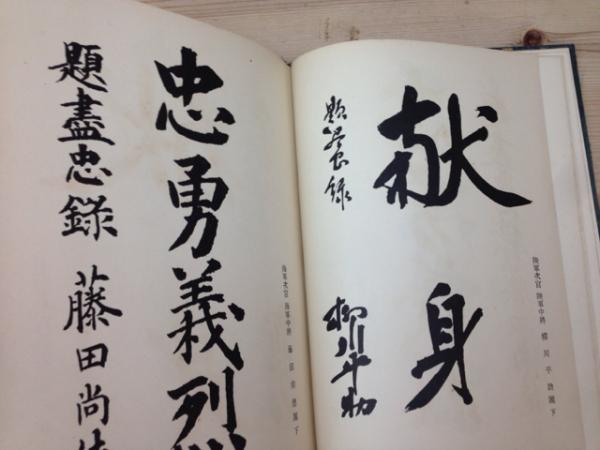 献身
題盡忠録
柳川平助
陸軍次官 陸軍中將 柳川平助閣下
忠勇義烈
題盡忠録
藤田尚
海軍次官 海軍中將 藤田尚德閣下